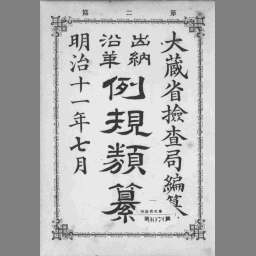 第二
大蔵省撿査局編纂
出納
沿革
例規類纂
明治十一年七月